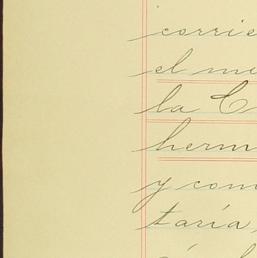 corrie
el me
la C
herm
y com
taría,